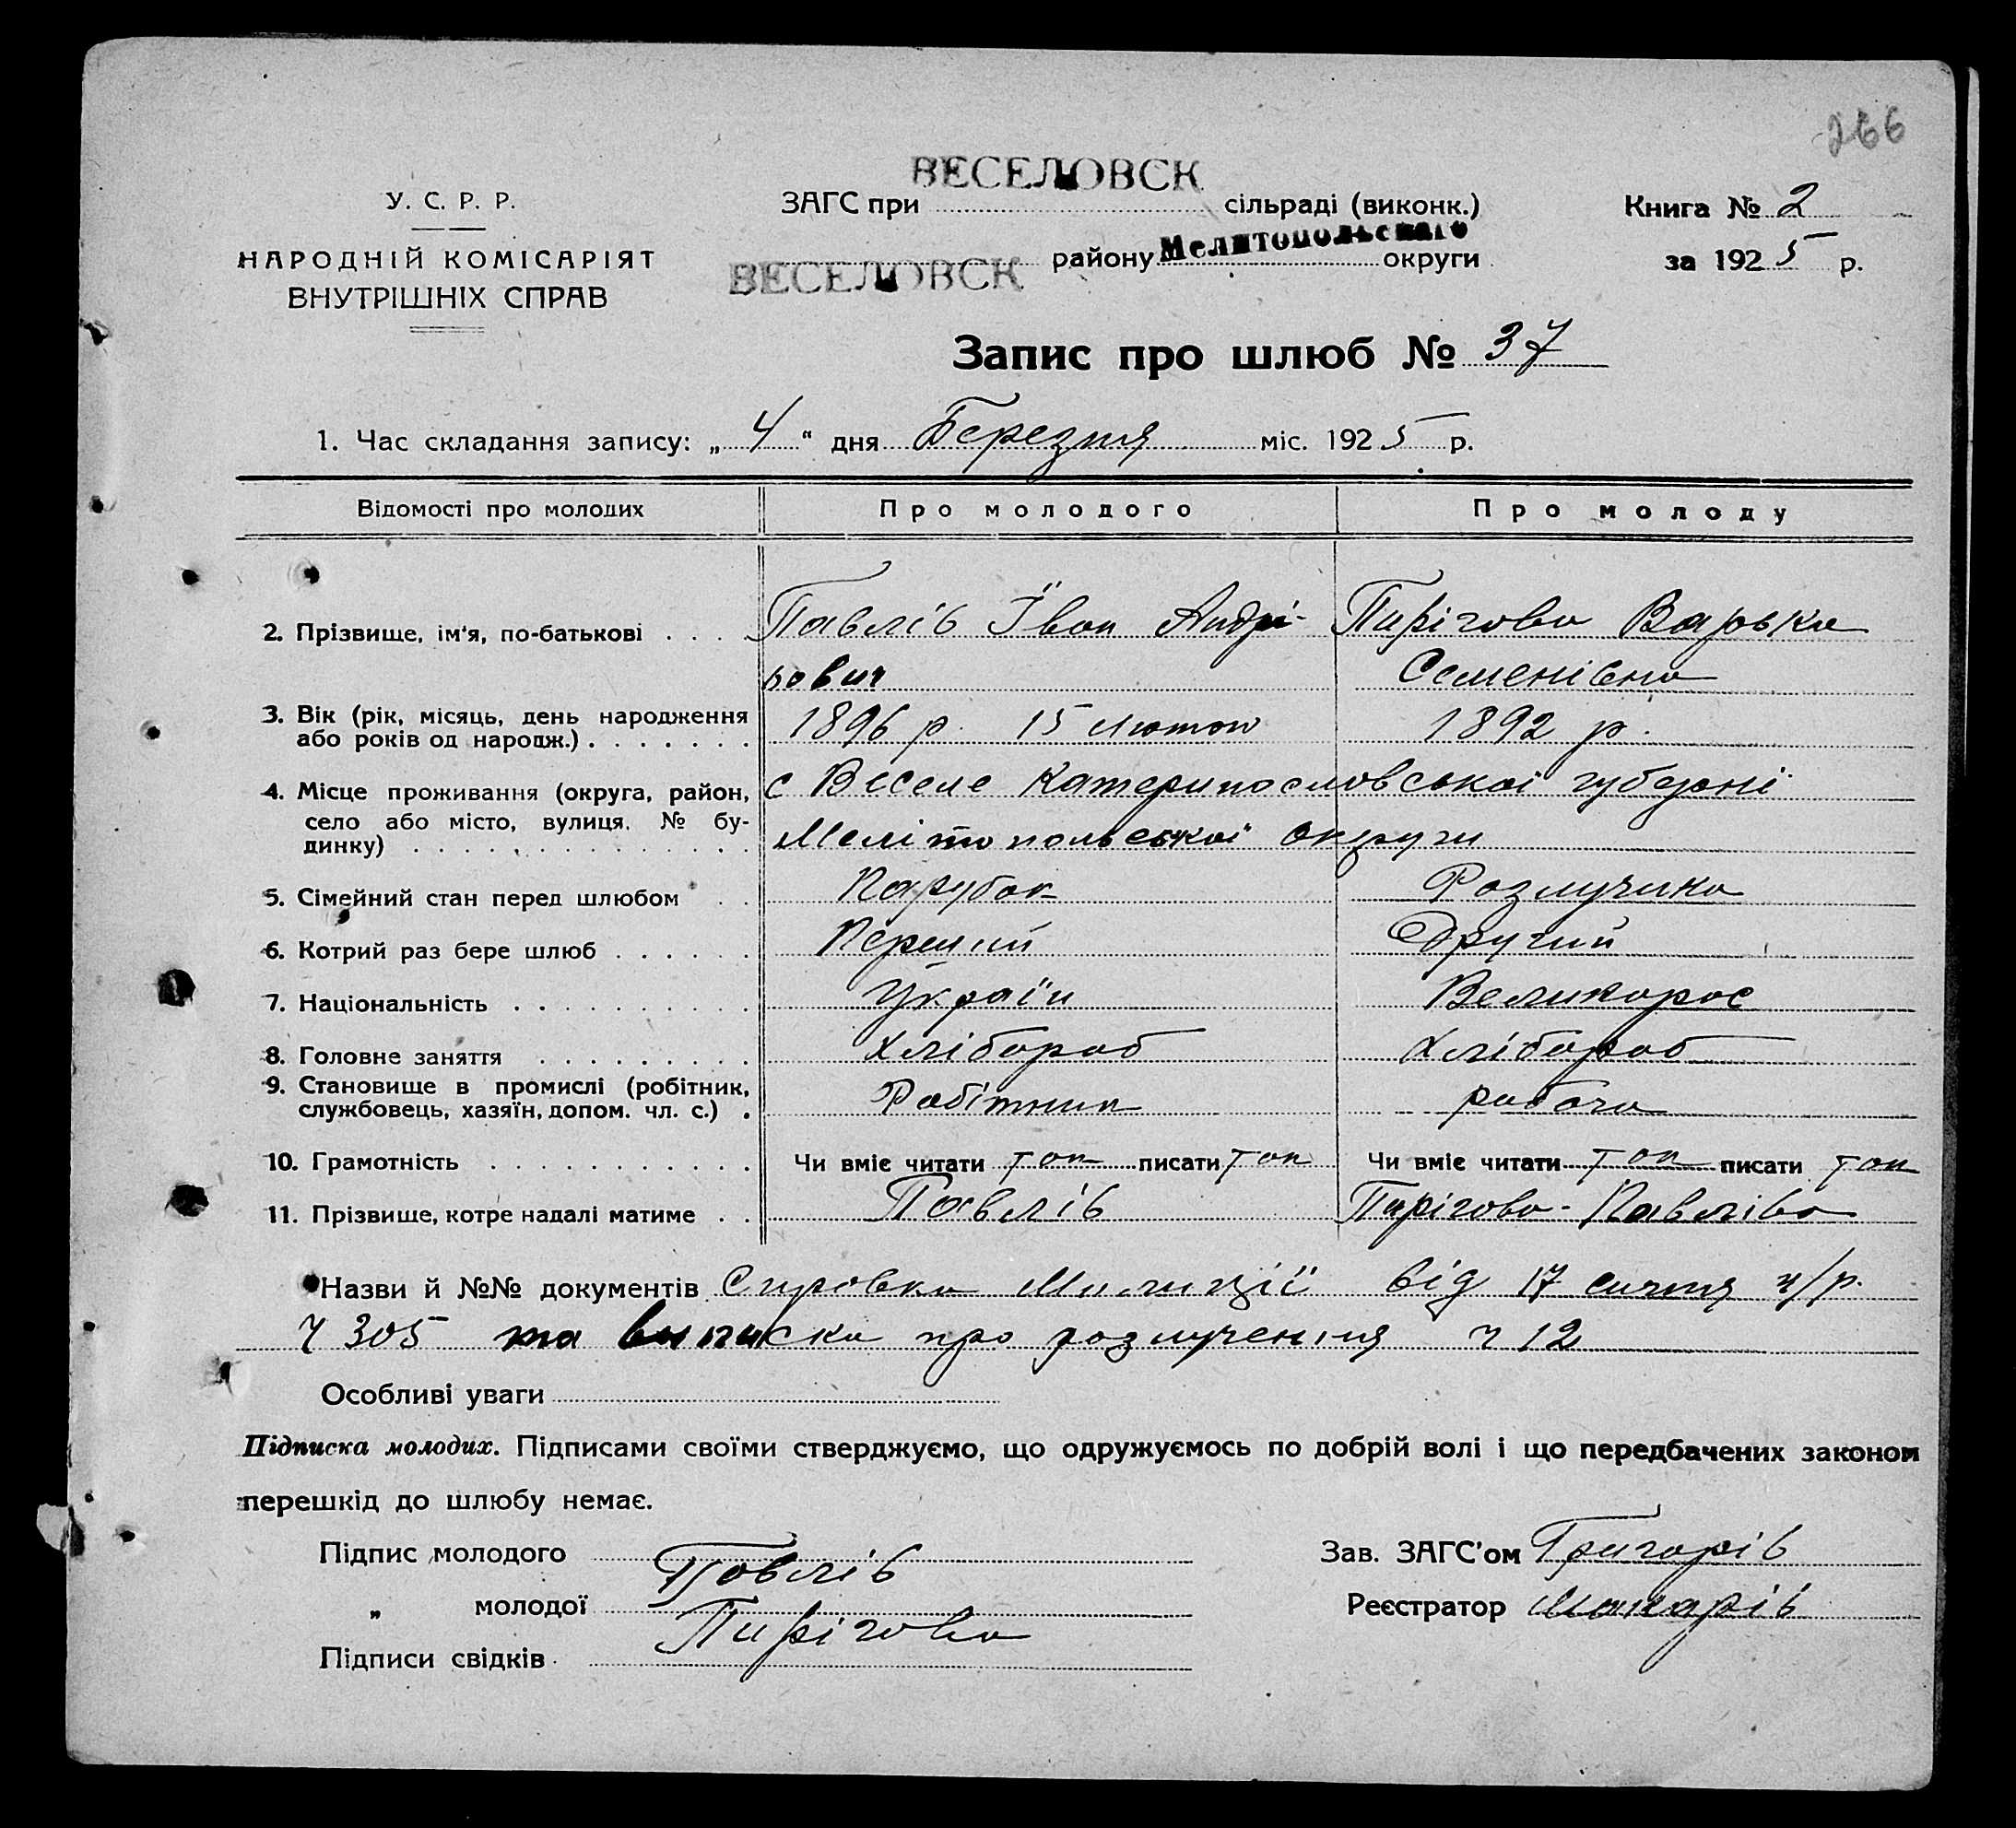 266
ВЕСЕЛОВСК
У. С. Р. Р.
НАРОДНІЙ КОМІСАРІЯТ
ВНУТРІШНІХ СПРАВ
ЗАГС при сільраді (виконк.)
ВЕСЕЛОВСК району Мелитопольского округи
Книга № 2
за 1925 р.
Запис про шлюб № 37
1. Час складання запису: „ 4 " дня Березня міс. 1925 р.
Відомості про молодих Про молодого Про молоду
2. Прізвище, ім'я, по-батькові . . . Павлів Іван Андрі- Пирігова Варька
йович Семенівна
3. Вік (рік, місяць, день народження
або років од народж.) . . . . . . . 1896 р. 15 Лютого 1892 р.
4. Місце проживання (округа, район,
село або місто, вулиця, № бу-
динку) . . . . . . . . . . . . . .
с Веселе Катеринославської губерні
Мелітопольської округи
5. Сімейний стан перед шлюбом . . Парубок Розлучика
6. Котрий раз бере шлюб . . . . . . Перший Другий
7. Національність . . . . . . . . . . Україн Великорос
8. Головне заняття . . . . . . . . . Хлібороб Хлібороб
9. Становище в промислі (робітник,
службовець, хазяїн, допом. чл. с.) . Робітник рабоча
10. Грамотність . . . . . . . . . . . Чи вміє читати так писати так Чи вміє читати так писати так
11. Прізвище, котре надалі матиме . . Павлів Пирігова-Павліва
Назви й №№ документів Справка Милиції від 17 січня ц/р.
ч 305 та виписка про розлучення ч 12
Особливі уваги
Підписка молодих. Підписами своїми стверджуємо, що одружуємось по добрій волі і що передбачених законом
перешкід до шлюбу немає.
Підпис молодого Павлів
„ молодої Пирігова
Підписи свідків
Зав. ЗАГС'ом Григорів
Реєстратор Макарів